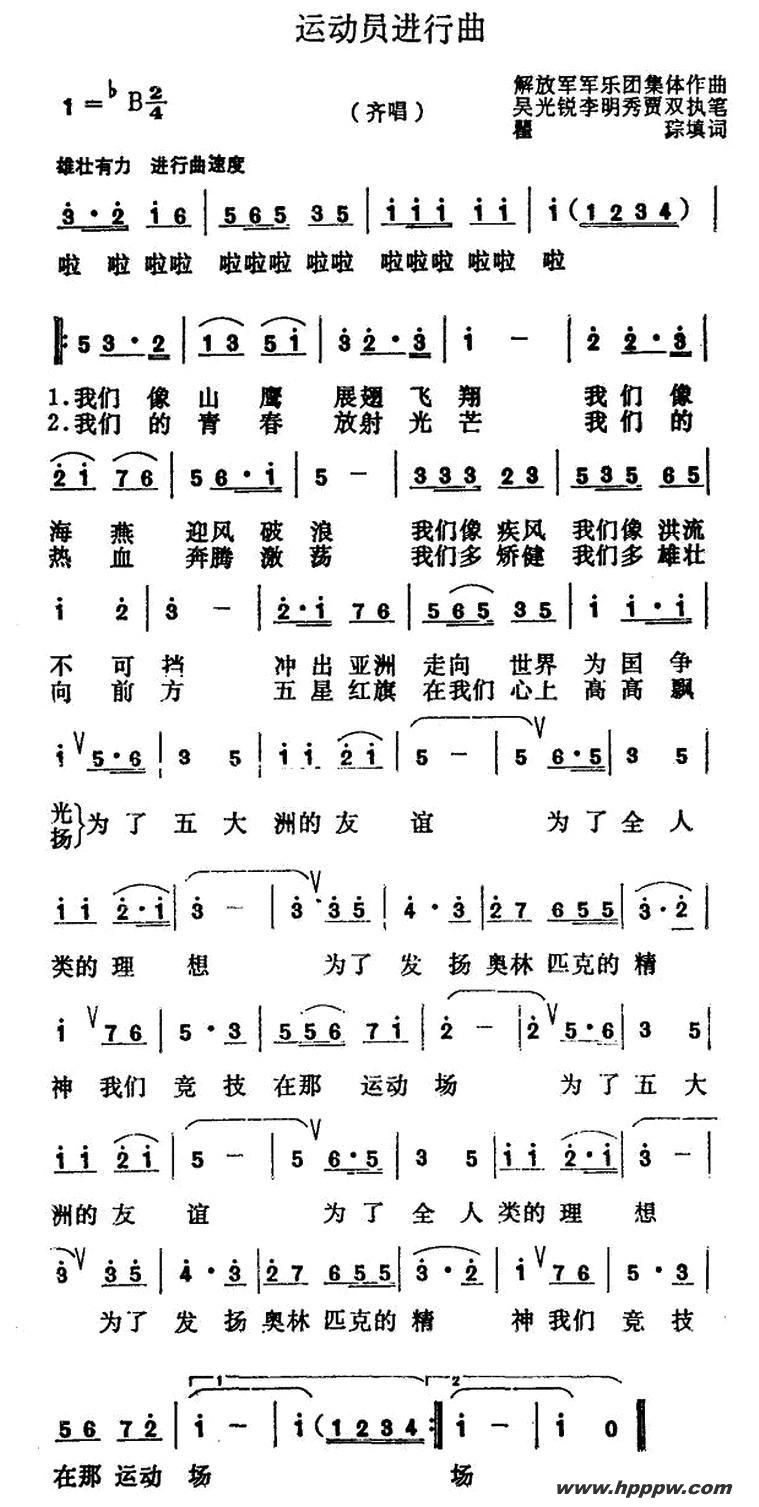 运动员进行曲
解放军军乐团集体作曲
1=♭B 2/4
（齐唱）
吴光锐李明秀贾双执笔
瞿琮填词
雄壮有力 进行曲速度
3·2 16 | 565 35 | 111 11 | 1（1234）|
啦 啦 啦啦 啦啦啦 啦啦 啦啦啦 啦啦 啦
‖: 5 3·2 | 13 51 | 3 2·3 | 1 － | 2 2·3 |
1.我们 像 山 鹰 展翅 飞 翔 我 们 像
2.我们 的 青 春 放射 光 芒 我 们 的
21 76 | 56·1 | 5 － | 333 23 | 535 65 |
海 燕 迎风 破 浪 我们像 疾风 我们像 洪流
热 血 奔腾 激 荡 我们多 矫健 我们多 雄壮
1 2 | 3 － | 2·1 76 | 565 35 | 1 1·1 |
不 可 挡 冲 出 亚洲 走向 世界 为 国 争
向 前 方 五 星 红旗 在我们 心上 高 高 飘
1 V 5·6 | 3 5 | 11 21 | 5 － | 5 V 6·5 | 3 5 |
光
扬
}为 了 五 大 洲的 友 谊 为 了 全 人
11 2·1 | 3 － | 3 V 35 | 4·3 | 27 655 | 3·2 |
类的 理 想 为了 发 扬 奥林 匹克的 精
1 V 76 | 5·3 | 556 71 | 2 － | 2 V 5·6 | 3 5 |
神 我们 竞 技 在那 运动 场 为 了 五 大
11 21 | 5 － | 5 V 6·5 | 3 5 | 11 2·1 | 3 － |
洲的 友 谊 为 了 全 人 类的 理 想
3 V 35 | 4·3 | 27 655 | 3·2 | 1 V 76 | 5·3 |
为了 发 扬 奥林 匹克的 精 神 我们 竞 技
1 2
56 72 | 1 － | 1（1234 :‖ 1 － | 1 0 ‖
在那 运动 场 场
www.hpppw.com